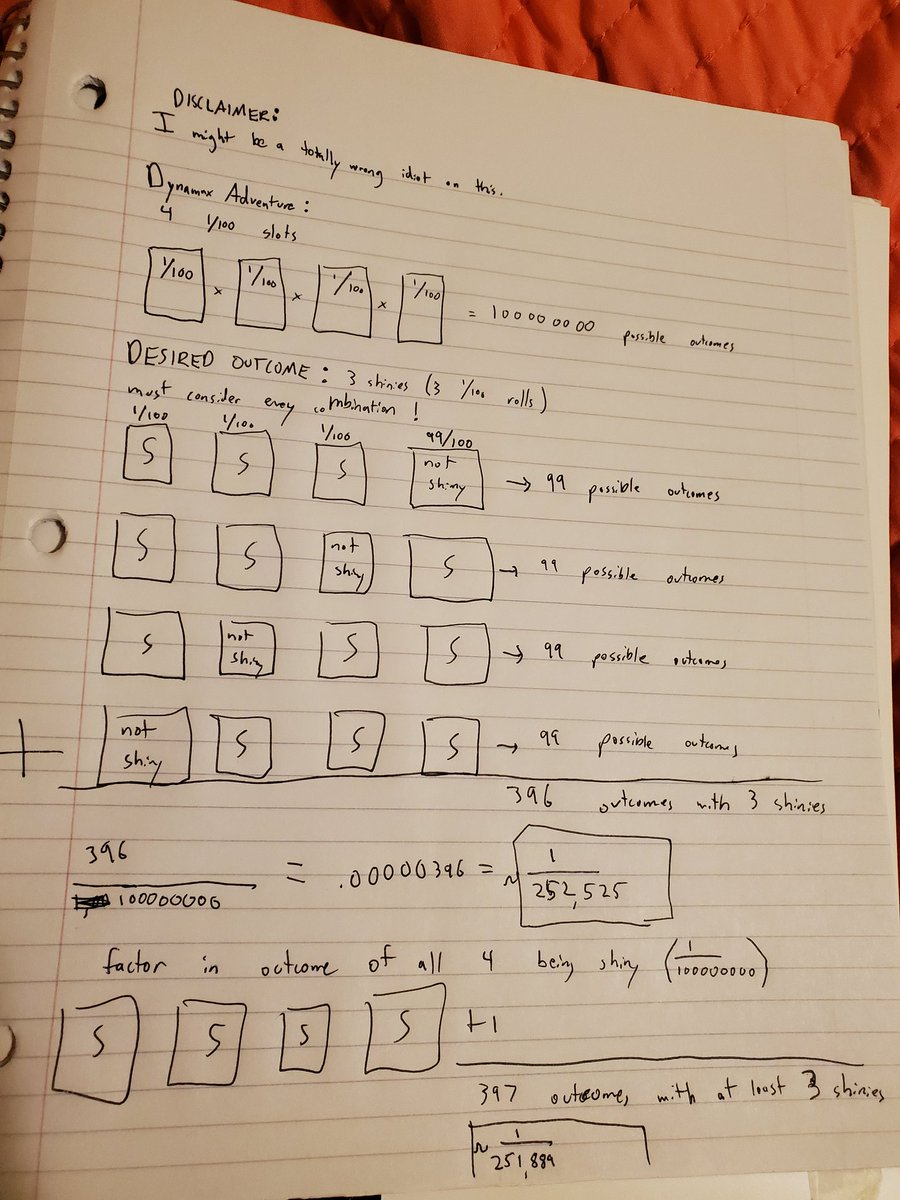 DISCLAIMER:
I might be a totally wrong idiot on this.
Dynamax Adventure:
4 1/100 slots
1/100 x 1/100 x 1/100 x 1/100 = 100000000 possible outcomes
DESIRED OUTCOME: 3 shinies (3 1/100 rolls)
must consider every combination!
1/100 1/100 1/100 99/100
S S S not shiny → 99 possible outcomes
S S not shiny S → 99 possible outcomes
S not shiny S S → 99 possible outcomes
+ not shiny S S S → 99 possible outcomes
396 outcomes with 3 shinies
396/100000000 = .00000396 = ~ 1/252,525
factor in outcome of all 4 being shiny (1/100000000)
S S S S +1
397 outcomes with at least 3 shinies
~ 1/251,889